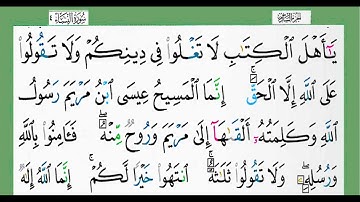 سُورَةُ النِّسَاءِ ٤
يَـٰٓأَهْلَ ٱلْكِتَـٰبِ لَا تَغْلُوا۟ فِى دِينِكُمْ وَلَا تَقُولُوا۟
عَلَى ٱللَّهِ إِلَّا ٱلْحَقَّ ۚ إِنَّمَا ٱلْمَسِيحُ عِيسَى ٱبْنُ مَرْيَمَ رَسُولُ
ٱللَّهِ وَكَلِمَتُهُۥٓ أَلْقَىٰهَآ إِلَىٰ مَرْيَمَ وَرُوحٌ مِّنْهُ ۖ فَـَٔامِنُوا۟ بِٱللَّهِ
وَرُسُلِهِۦ ۖ وَلَا تَقُولُوا۟ ثَلَـٰثَةٌ ۚ ٱنتَهُوا۟ خَيْرًا لَّكُمْ ۚ إِنَّمَا ٱللَّهُ إِلَـٰهٌ